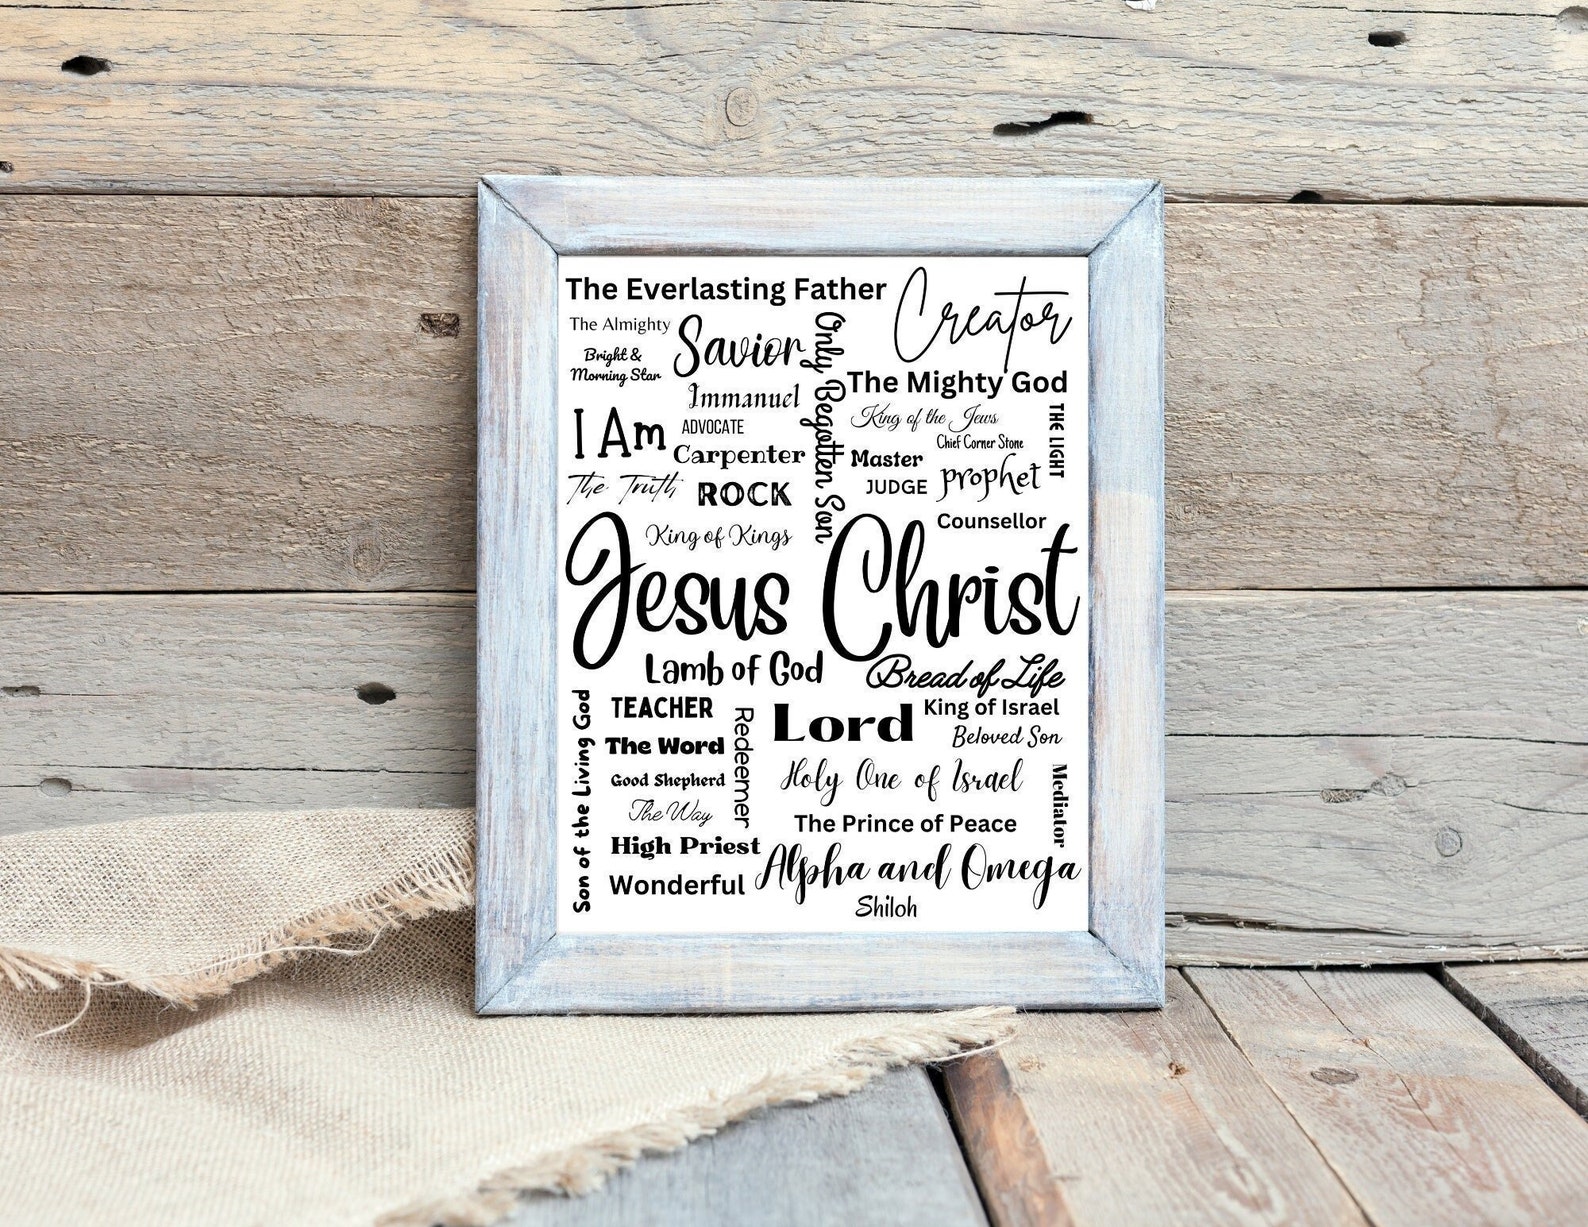 The Everlasting Father
Creator
The Almighty
Savior
Only Begotten Son
Bright &
Morning Star
The Mighty God
Immanuel
King of the Jews
THE LIGHT
I Am
ADVOCATE
Chief Corner Stone
Carpenter
Master
prophet
The Truth
ROCK
JUDGE
King of Kings
Counsellor
Jesus Christ
Lamb of God
Bread of Life
Son of the Living God
TEACHER
Redeemer
Lord
King of Israel
The Word
Beloved Son
Good Shepherd
Holy One of Israel
Mediator
The Way
The Prince of Peace
High Priest
Alpha and Omega
Wonderful
Shiloh